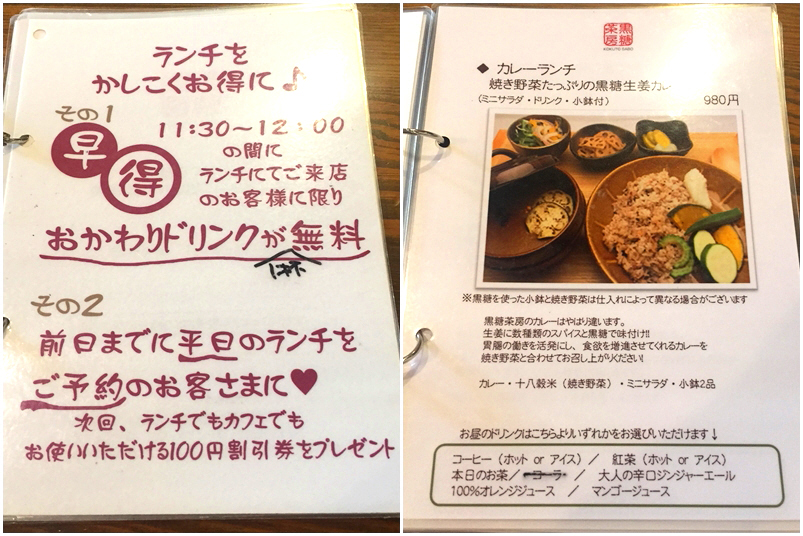 ランチを
かしこくお得に♪
その1
早得
11:30～12:00
の間に
ランチにてご来店
のお客様に限り
おかわりドリンクが無料
1杯
その2
前日までに平日のランチを
ご予約のお客さまに♥
次回、ランチでもカフェでも
お使いいただける100円割引券をプレゼント
黒糖茶房
KOKUTO SABO
◆ カレーランチ
焼き野菜たっぷりの黒糖生姜カレー
(ミニサラダ・ドリンク・小鉢付) 980円
※黒糖を使った小鉢と焼き野菜は仕入れによって異なる場合がございます
黒糖茶房のカレーはやはり違います。
生姜に数種類のスパイスと黒糖で味付け!!
胃腸の働きを活発にし、食欲を増進させてくれるカレーを
焼き野菜と合わせてお召し上がりください!
カレー・十八穀米（焼き野菜）・ミニサラダ・小鉢2品
お昼のドリンクはこちらよりいずれかをお選びいただけます↓
コーヒー（ホット or アイス）／ 紅茶（ホット or アイス）
本日のお茶／ コーラ ／ 大人の辛口ジンジャーエール
100%オレンジジュース ／ マンゴージュース